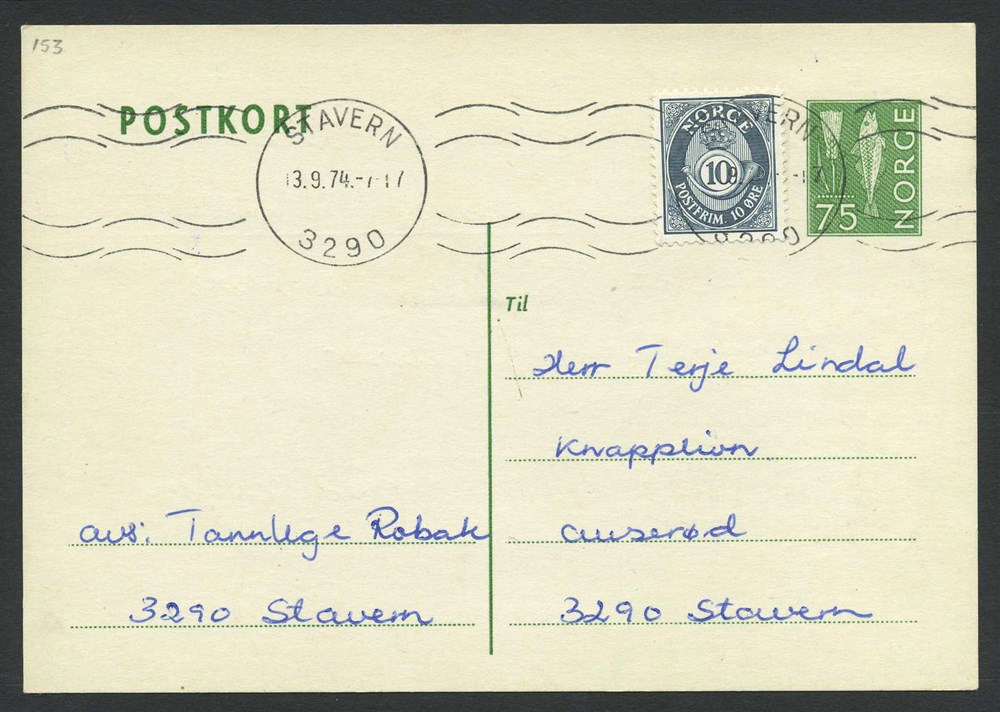 153
POSTKORT
STAVERN
13.9.74.-7-17
3290
NORGE
10
POSTFRIM. 10 ØRE
NORGE
75
Til
Herr Terje Lindal
Knapplivn.
auserød
3290 Stavern
avs: Tannlege Robak
3290 Stavern